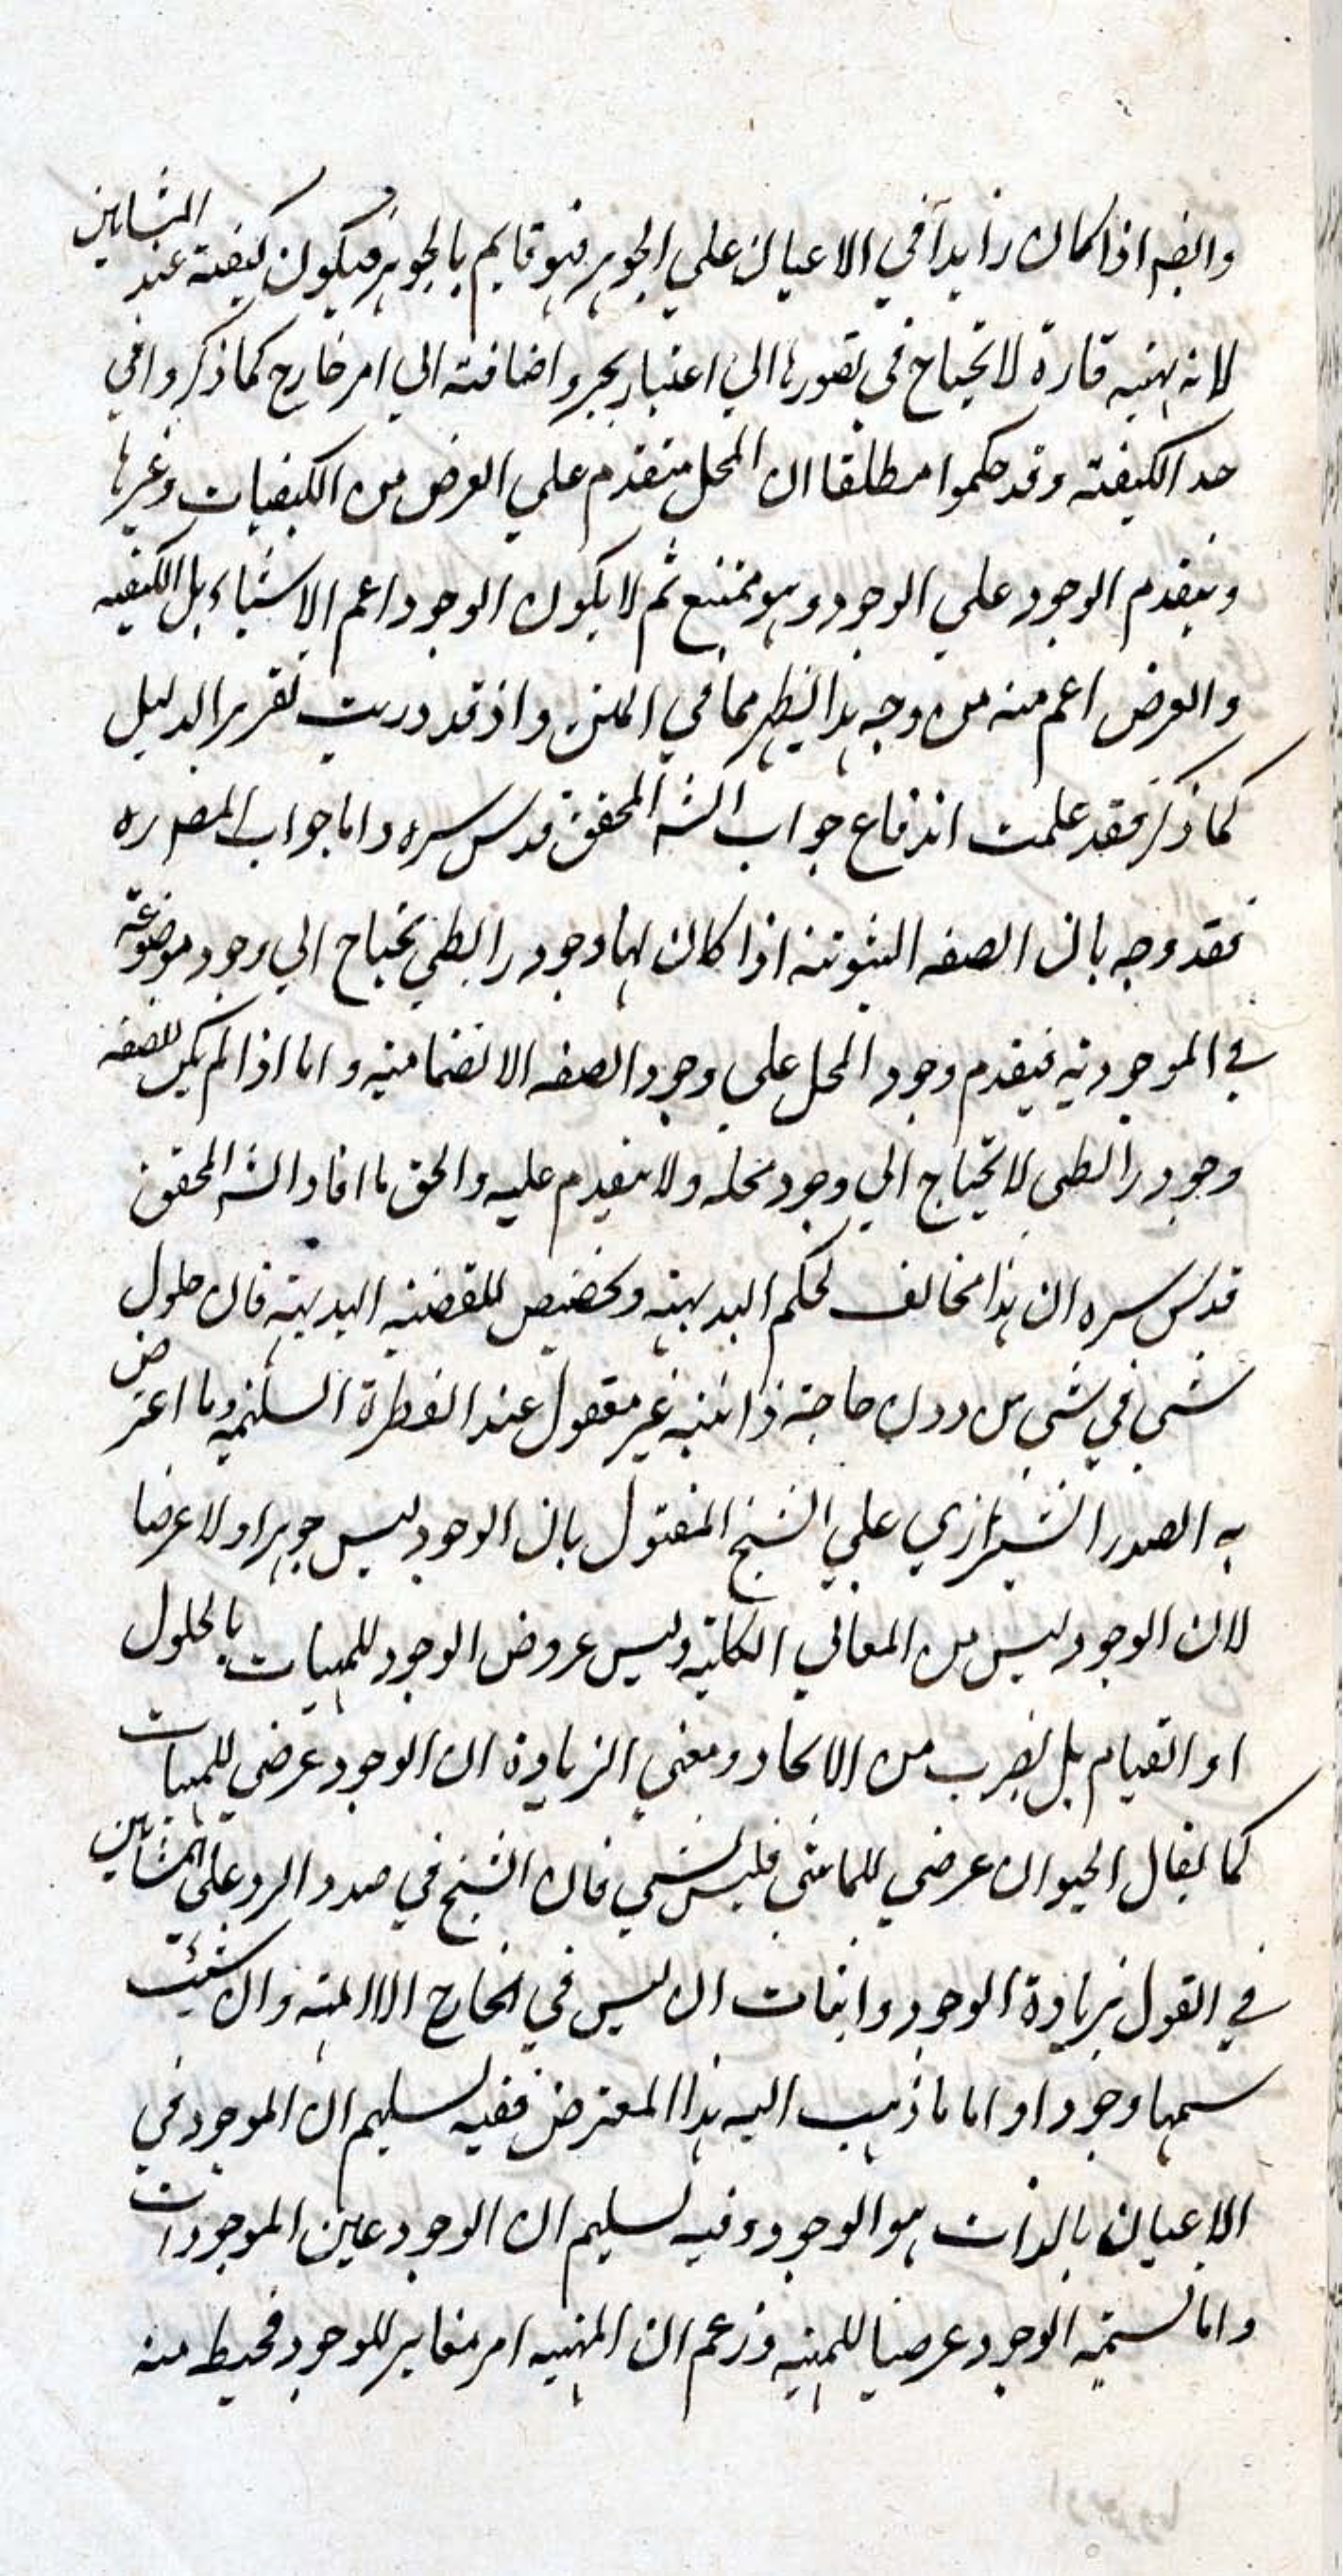 وايضا اذا كان زايدا في الاعيان علي الجوهر فهو قايم بالجوهر فيكون كيفية عند المشايين
لانه هيئة قارة لا تحتاج في تصورها الي اعتبار تجز واضافته الي امر خارج كما ذكروا في
حد الكيفية وقد حكموا مطلقا ان المحل متقدم علي العرض من الكيفيات وغيرها
فيتقدم الوجود علي الوجود وهو ممتنع ثم لا يكون الوجود اعم الاشياء بل الكيفيه
والعرض اعم منه من وجه هذا يظهر مما في المتن واذ قد دريت تقرير الدليل
كما ذكر فقد علمت اندفاع جواب الشه المحقق قدس سره واما جواب المصـ ره
فقد وجه بان الصفه الثبوتية اذا كان لها وجود رابطي تحتاج الي وجود موضوعه
في الموجودية فيقدم وجود المحل علي وجود الصفه الانضمامية واما اذا لم يكن للصفه
وجود رابطي لا تحتاج الي وجود محله ولا يتقدم عليه والحق ما افاد الشه المحقق
قدس سره ان هذا مخالف لحكم البديهة وتخصيص للقضية البديهية فان حلول
شي في شي من دون حاجة ذاتية غير معقول عند الفطرة السليمة وما اعترض
به الصدر الشيرازي علي الشيخ المقتول بان الوجود ليس جوهرا ولا عرضا
لان الوجود ليس من المعاني الكلية وليس عروض الوجود للمهيات بالحلول
او القيام بل بضرب من الاتحاد ومعني الزيادة ان الوجود عرضي للمهيات
كما يقال الحيوان عرضي للماشي فليس بشي فان الشيخ في صدد الرد علي المشايين
في القول بزيادة الوجود واثبات ان ليس في الخارج الا المهية وان شئت
سمها وجودا واما ما ذهب اليه هذا المعترض ففيه تسليم ان الموجود في
الاعيان بالذات هو الوجود وفيه تسليم ان الوجود عين الموجودات
واما تسمية الوجود عرضيا للمهية وزعم ان المهية امر مغاير للوجود فخبط منه